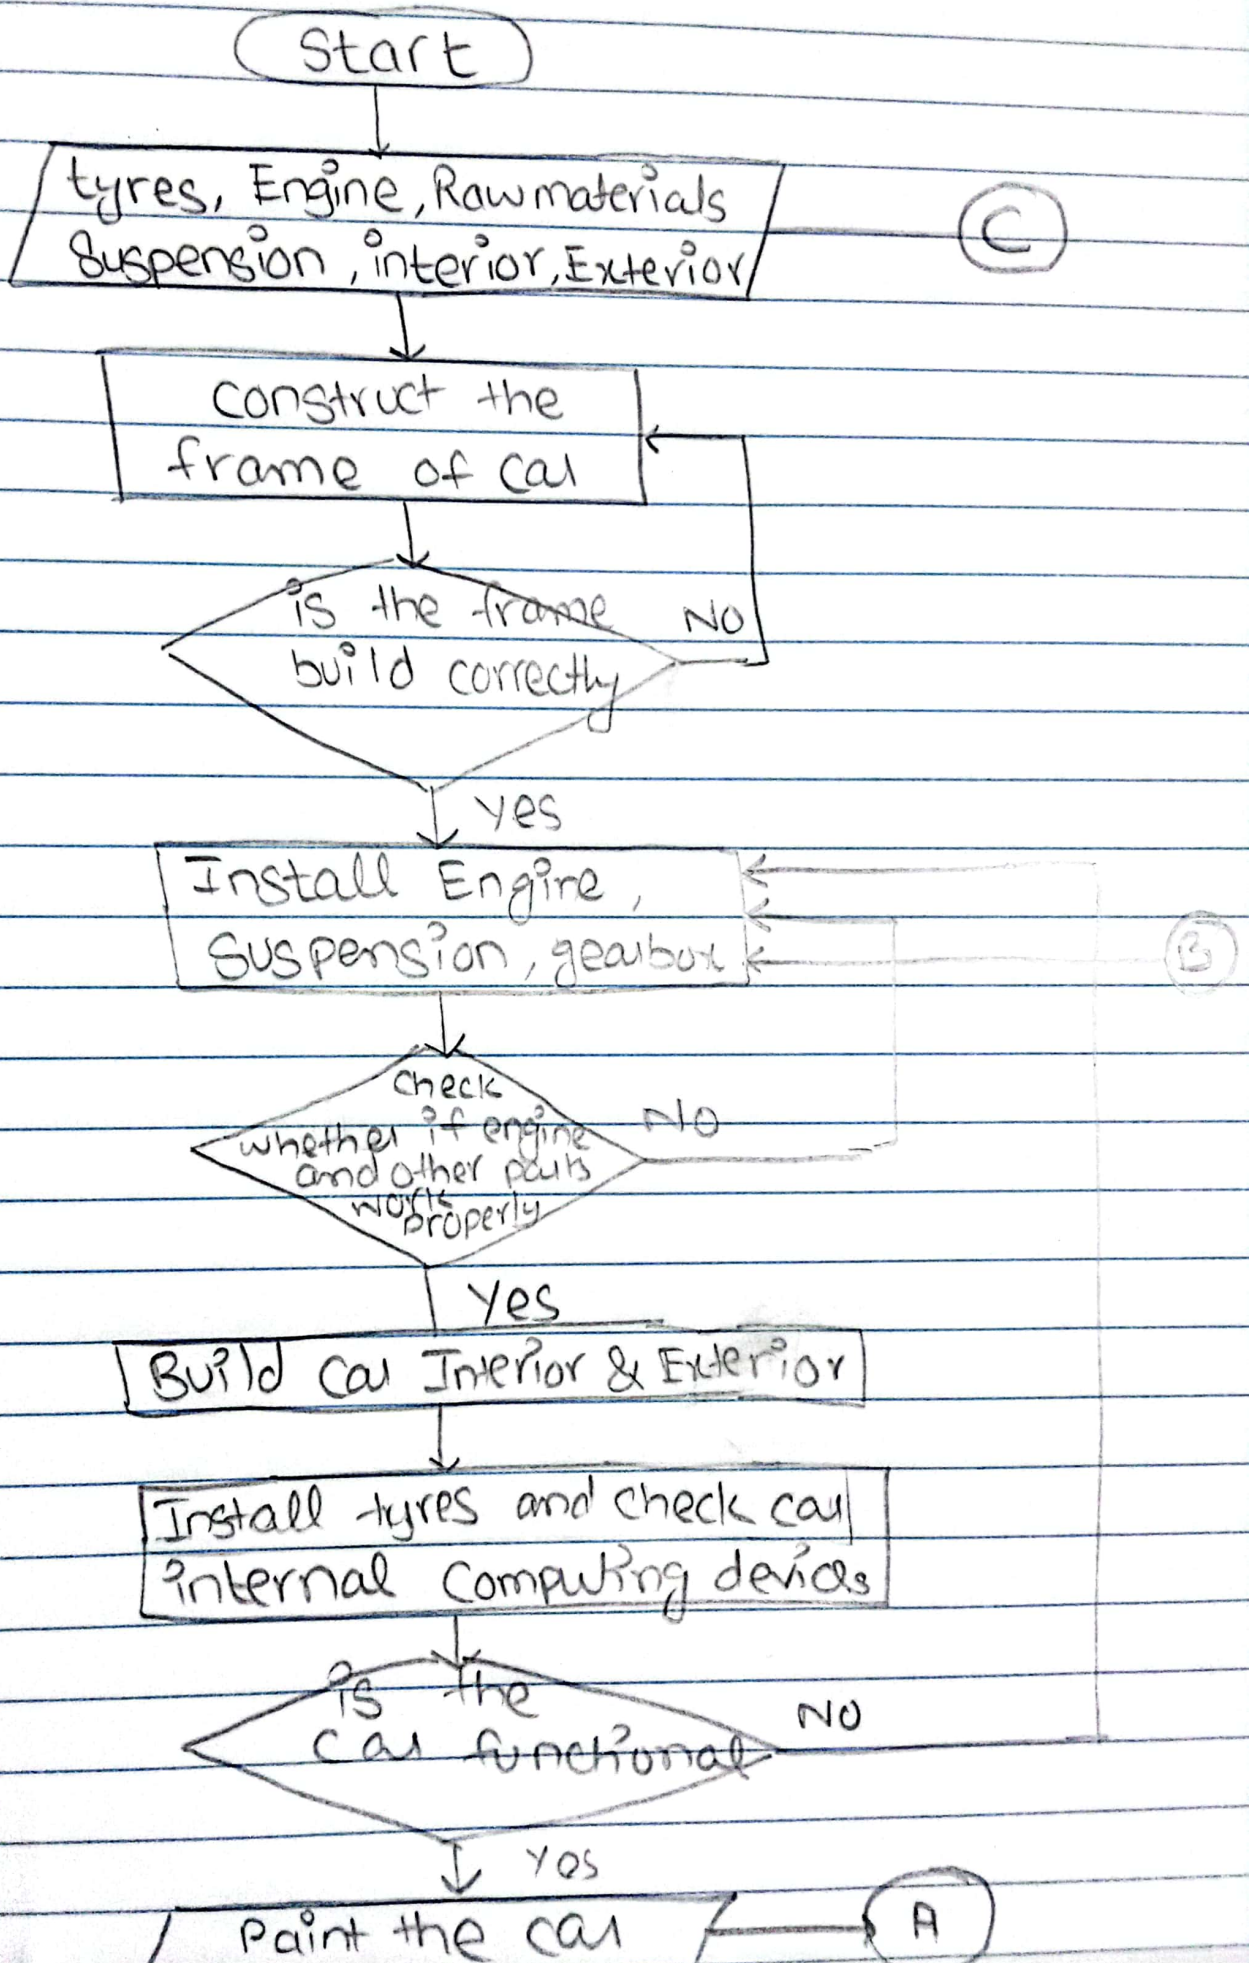 Start
tyres, Engine, Raw materials
C
Suspension, interior, Exterior
Construct the
frame of car
is the frame
NO
build correctly
Yes
Install Engine,
Suspension, gearbox
B
Check
NO
whether if engine
and other parts
works
properly
Yes
Build Car Interior & Exterior
Install tyres and check car
internal computing devices
is the
NO
Car functional
Yes
Paint the car
A